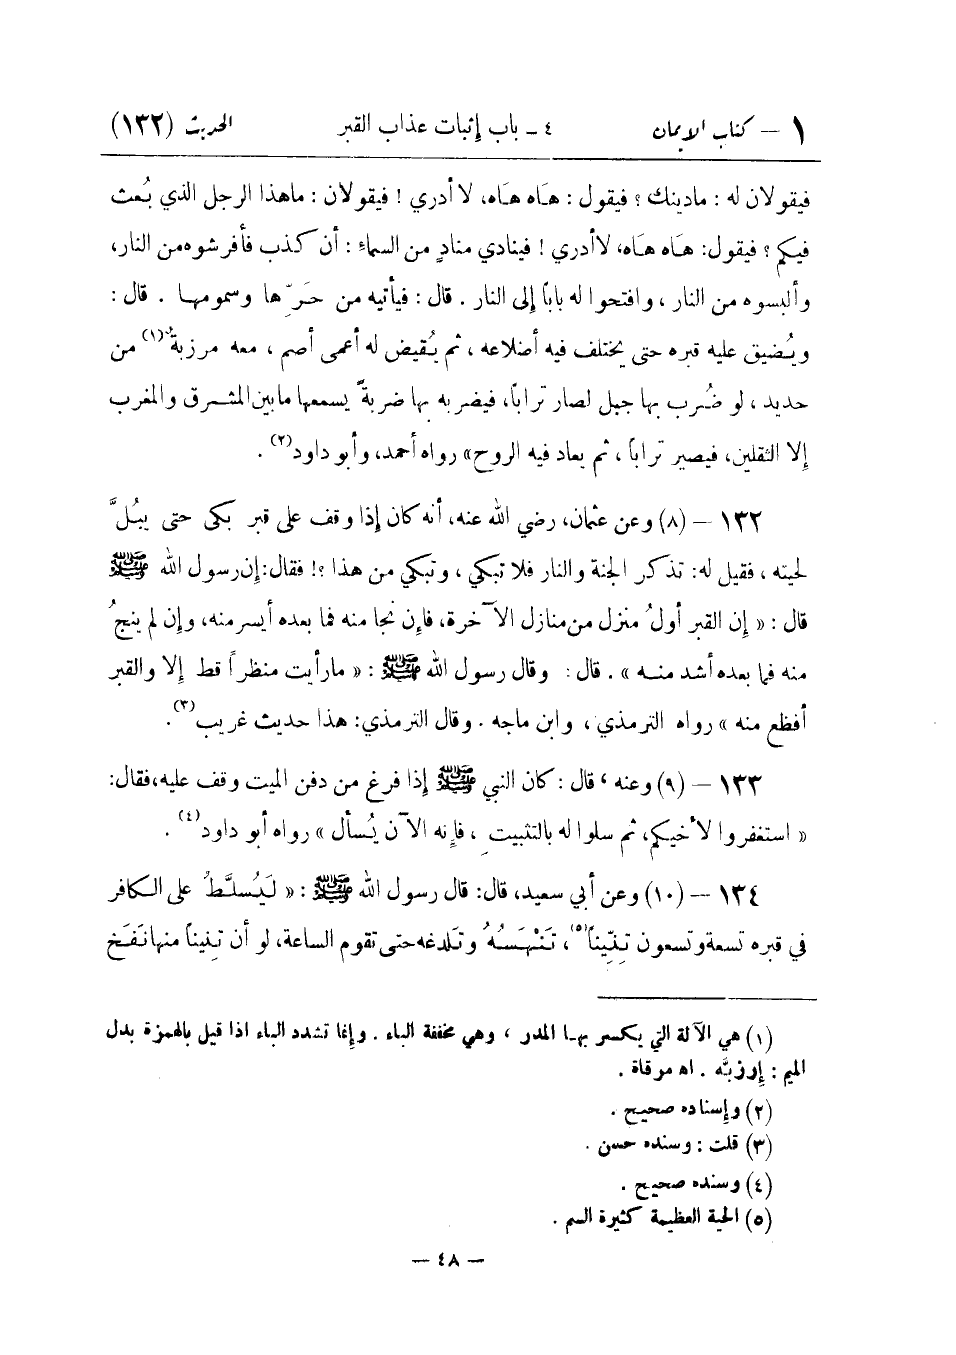 ١ – كتاب الايمان ٤ – باب إثبات عذاب القبر الحديث (١٣٢)
فيقولان له : مادينك ؟ فيقول : هَاه هَاه، لا أدري ! فيقولان : ماهذا الرجل الذي بُعث
فيكم ؟ فيقول: هَاه هَاه، لاأدري ! فينادي منادٍ من السماء : أن كذب فأفرشوه من النار،
وألبسوه من النار ، وافتحوا له باباً إلى النار . قال : فيأتيه من حَرِّها وسمومها . قال :
ويُضيق عليه قبره حتى يختلف فيه أضلاعه ، ثم يُقيض له أعمى أصم ، معه مرزبةٌ(١) من
حديد ، لو ضُرب بها جبل لصار تراباً، فيضربه بها ضربةً يسمعها مابين المشرق والمغرب
إلا الثقلين، فيصير تراباً ، ثم يعاد فيه الروح» رواه أحمد، وأبو داود(٢) .
١٣٢ – (٨) وعن عثمان، رضي الله عنه، أنه كان إذا وقف على قبر بكى حتى يبُلَّ
لحيته ، فقيل له: تذكر الجنة والنار فلا تبكي ، وتبكي من هذا ؟! فقال: إن رسول الله ﷺ
قال : « إن القبر أولُ منزل من منازل الآخرة، فإن نجا منه فما بعده أيسر منه، وإن لم ينجُ
منه فما بعده أشد منه » . قال : وقال رسول الله ﷺ : « مارأيت منظراً قط إلا والقبر
أفظع منه » رواه الترمذي ، وابن ماجه . وقال الترمذي: هذا حديث غريب(٣).
١٣٣ – (٩) وعنه ، قال : كان النبي ﷺ إذا فرغ من دفن الميت وقف عليه، فقال:
« استغفروا لأخيكم، ثم سلوا له بالتثبيتِ ، فإنه الآن يُسأل » رواه أبو داود(٤) .
١٣٤ – (١٠) وعن أبي سعيد، قال: قال رسول الله ﷺ : « لَيُسلَّطُ على الكافر
في قبره تسعة وتسعون تِنِّيناً(٥)، تَنْهَسُهُ وتَلدغه حتى تقوم الساعة، لو أن تِنيناً منها نَفَخ
(١) هي الآلة التي يكسر بها المدر ، وهي مخففة الباء . وإنما تشدد الباء اذا قيل بالهمزة بدل
الميم : إرزبَّه . اه مرقاة .
(٢) وإسناده صحيح .
(٣) قلت : وسنده حسن .
(٤) وسنده صحيح .
(٥) الحية العظيمة كثيرة السم .
– ٤٨ –